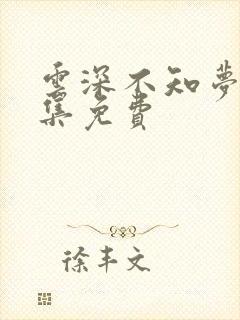 雲深不知夢
集免費
徐丰文